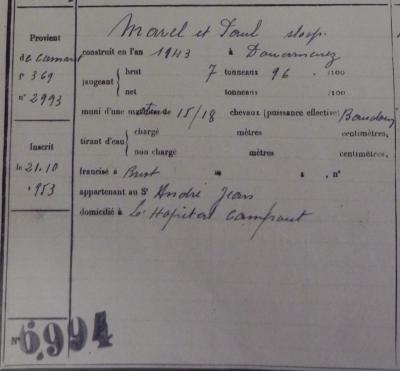 Marcel et Paul sloop.
Provient
de Camaret
f° 369
n° 2993
construit en l'an 1943 à Douarnenez
jaugeant { brut 7 tonneaux 96 /100
net tonneaux /100
muni d'une moteur de 15/18 chevaux (puissance effective) Baudouin
tirant d'eau { chargé mètres centimètres,
non chargé mètres centimètres,
Inscrit
le 21.10
1953
francisé à Brest le , n°
appartenant au Sr André Jean
domicilié à Le Hopital Camfrout
N° 6.994